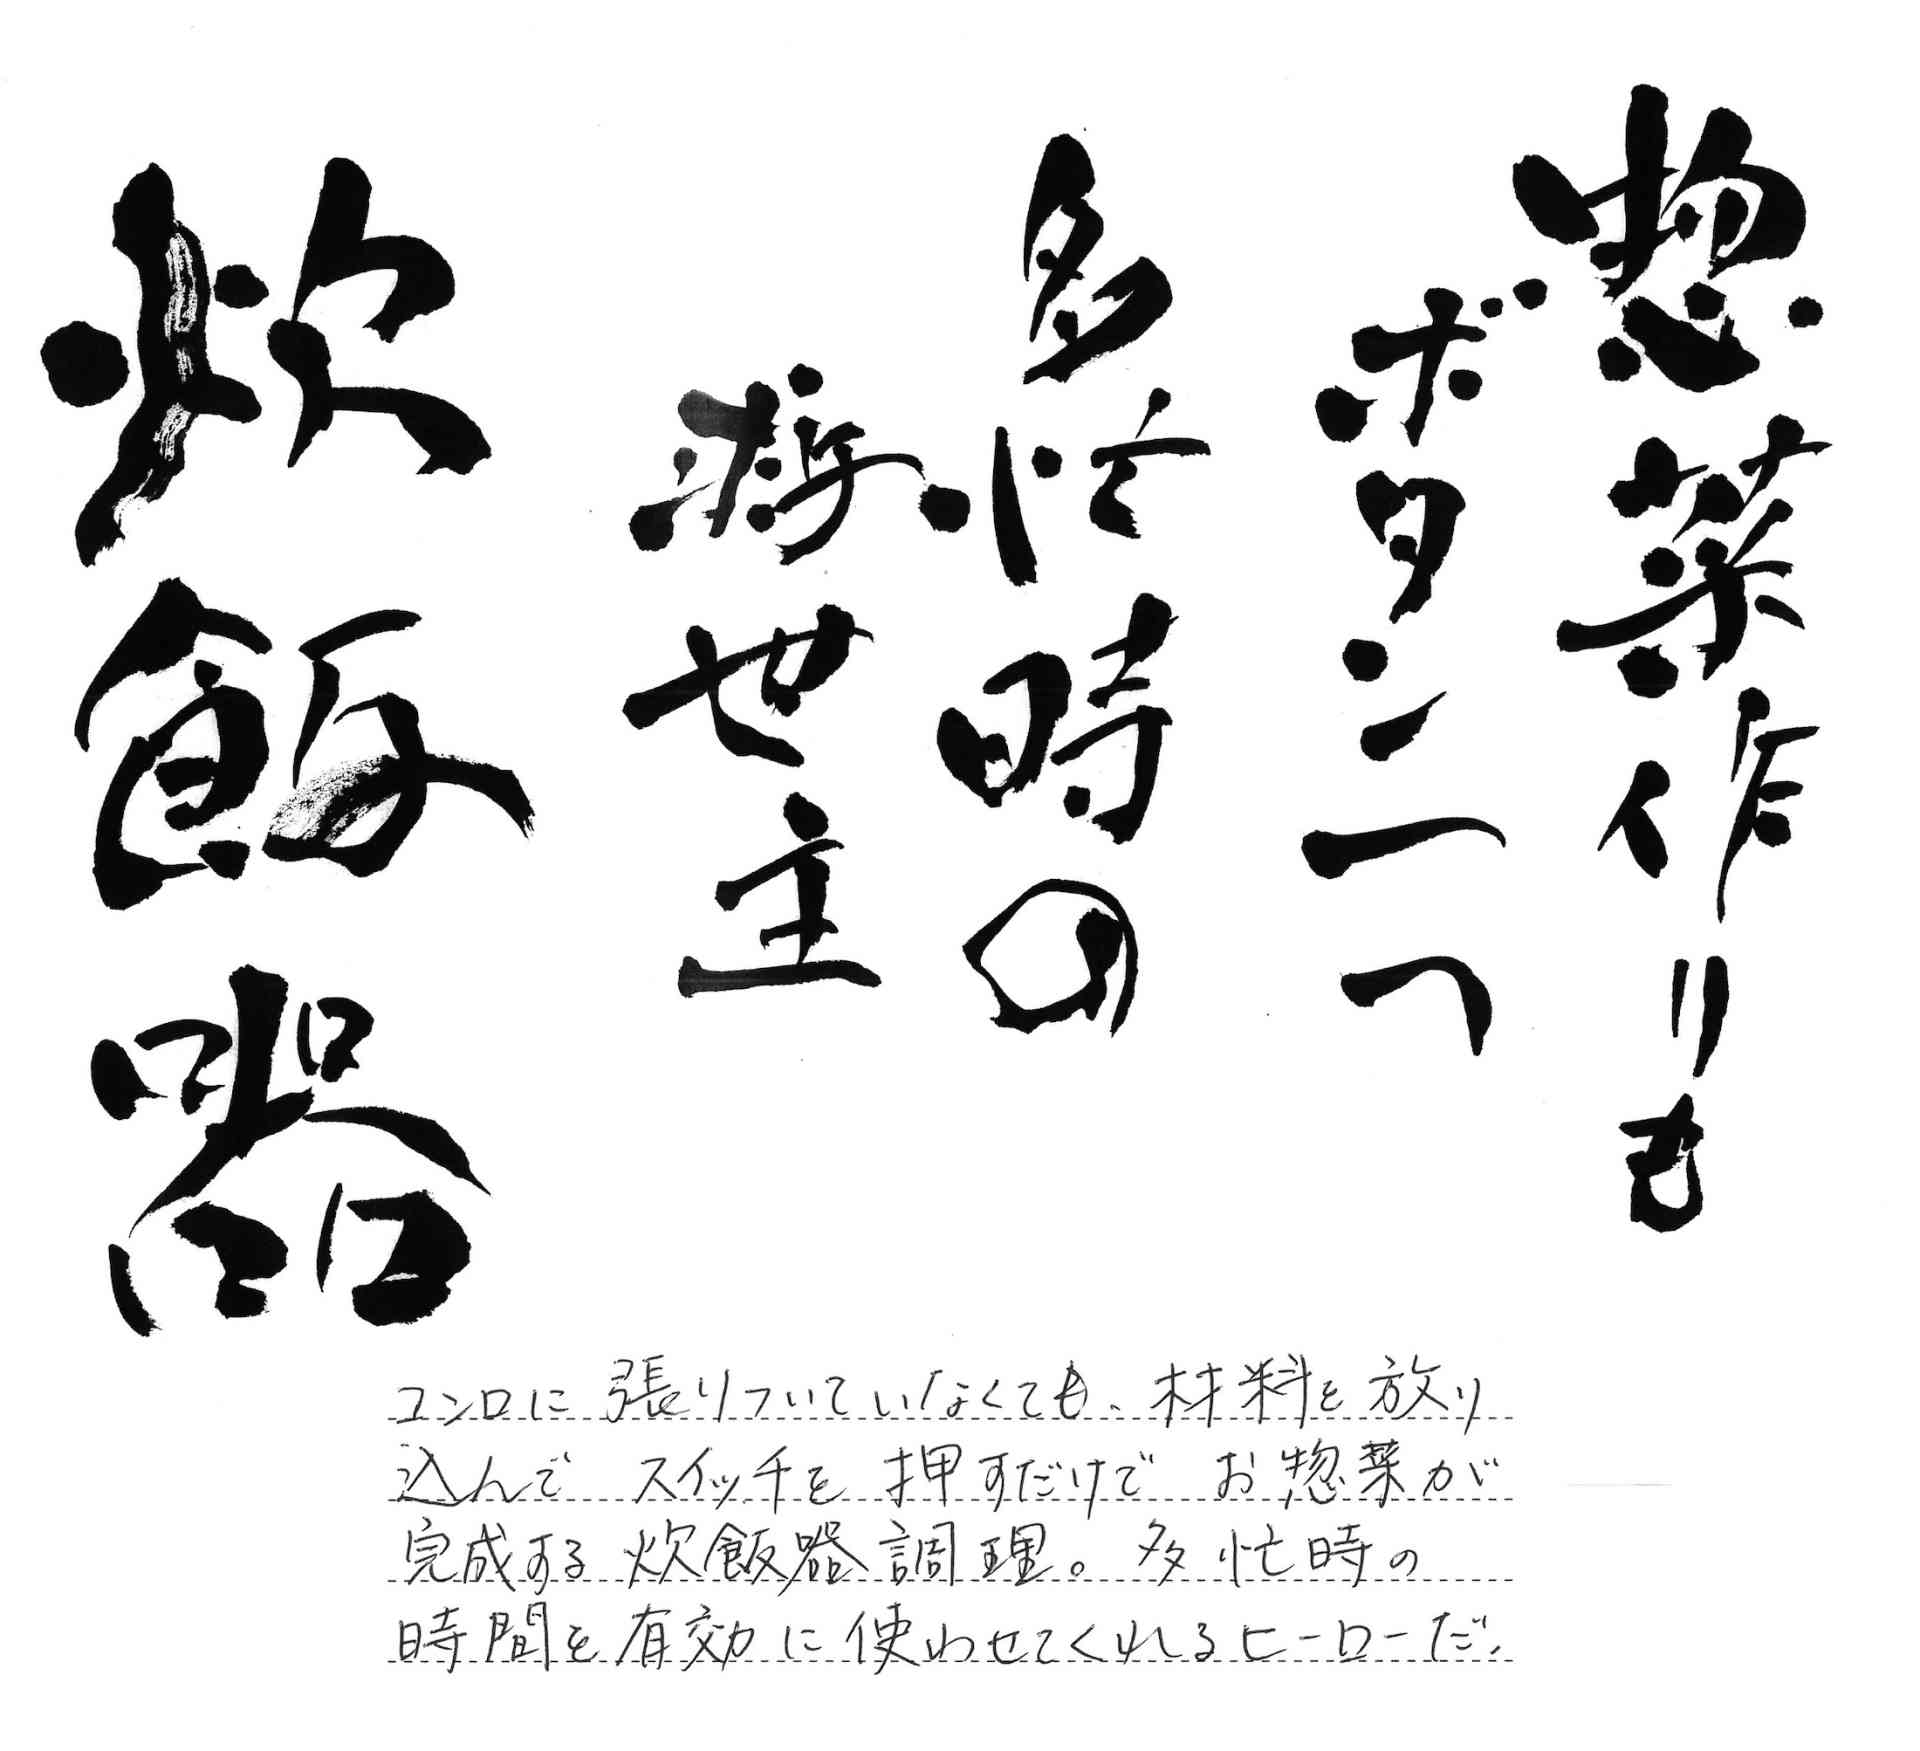 惣菜作りも
ボタン一つ
多忙時の
救世主
炊飯器
コンロに張りついていなくても、材料を放り
込んでスイッチを押すだけでお惣菜が
完成する炊飯器調理。多忙時の
時間を有効に使わせてくれるヒーローだ。